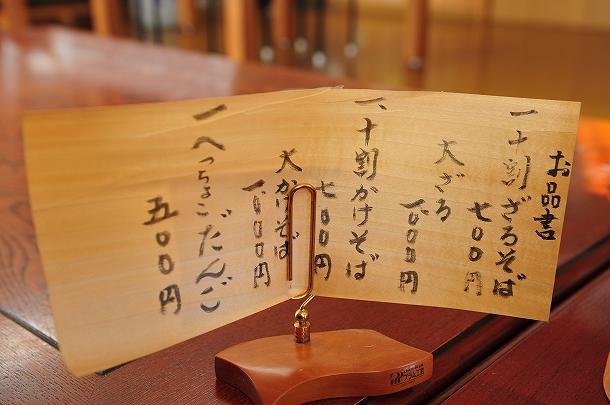 お品書
一、十割ざるそば
七〇〇円
大ざる
一、〇〇〇円
一、十割かけそば
七〇〇円
大かけそば
一、〇〇〇円
一、へっちょこだんご
五〇〇円